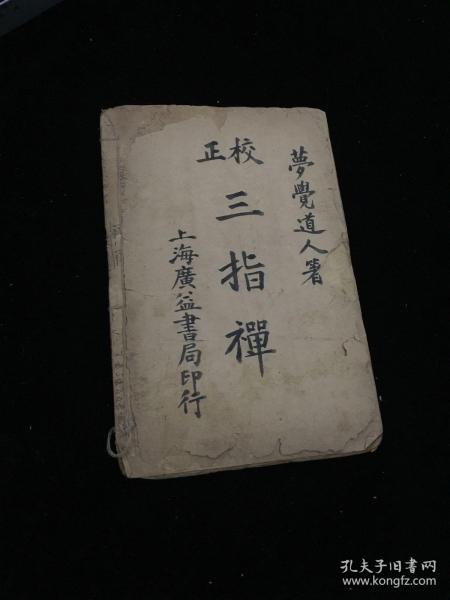 夢覺道人著
校正
三指禪
上海廣益書局印行
孔夫子旧书网
www.kongfz.com